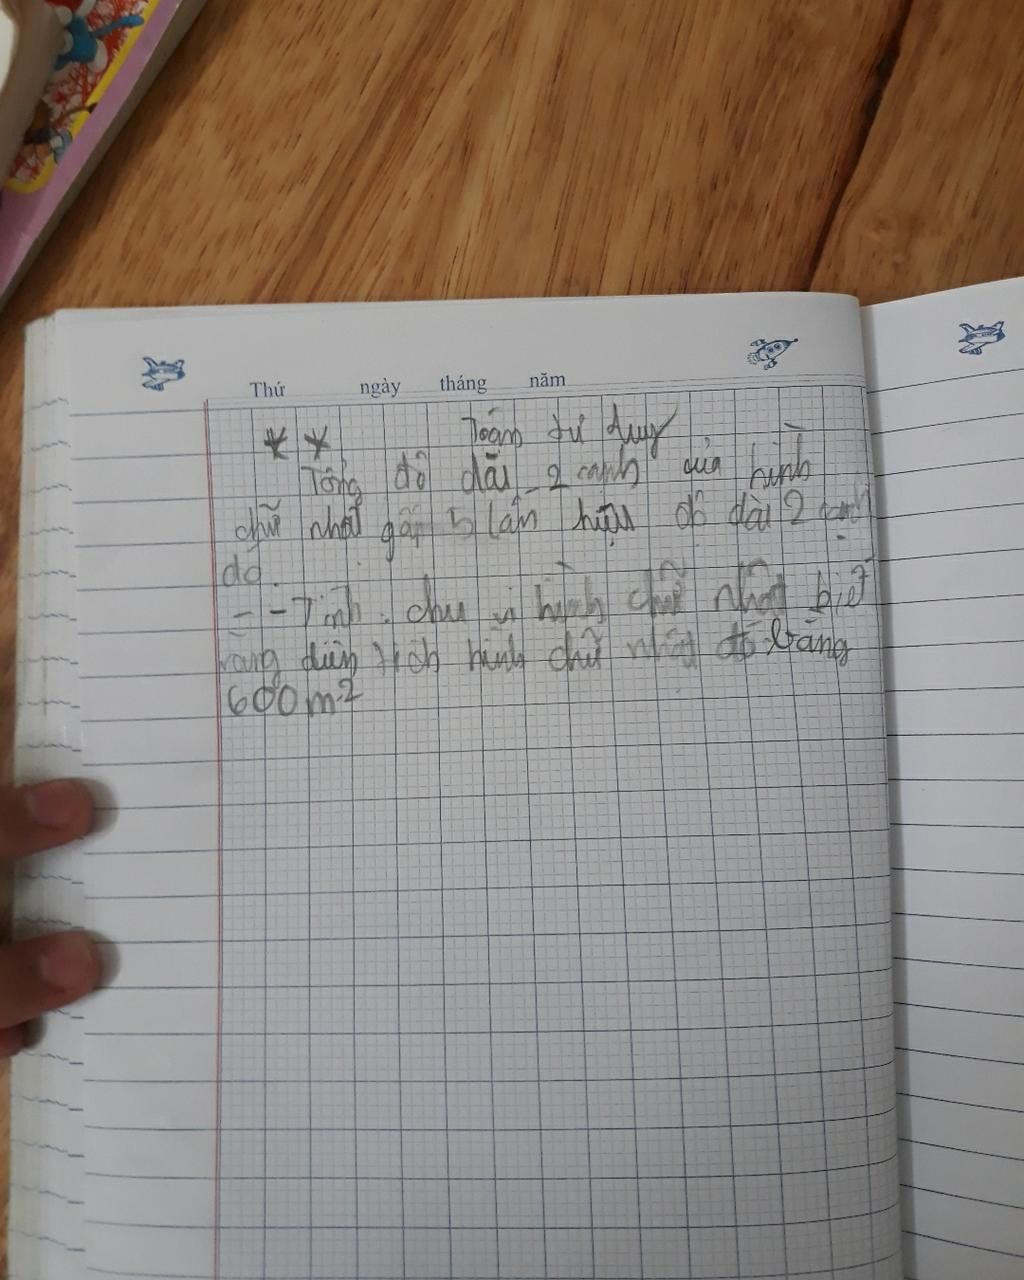 Thứ ngày tháng năm
** Toán tư duy
Tổng độ dài 2 cạnh của hình
chữ nhật gấp 5 lần hiệu độ dài 2 cạnh
đó.
- - Tính chu vi hình chữ nhật biết
rằng diện tích hình chữ nhật đó bằng
600m2